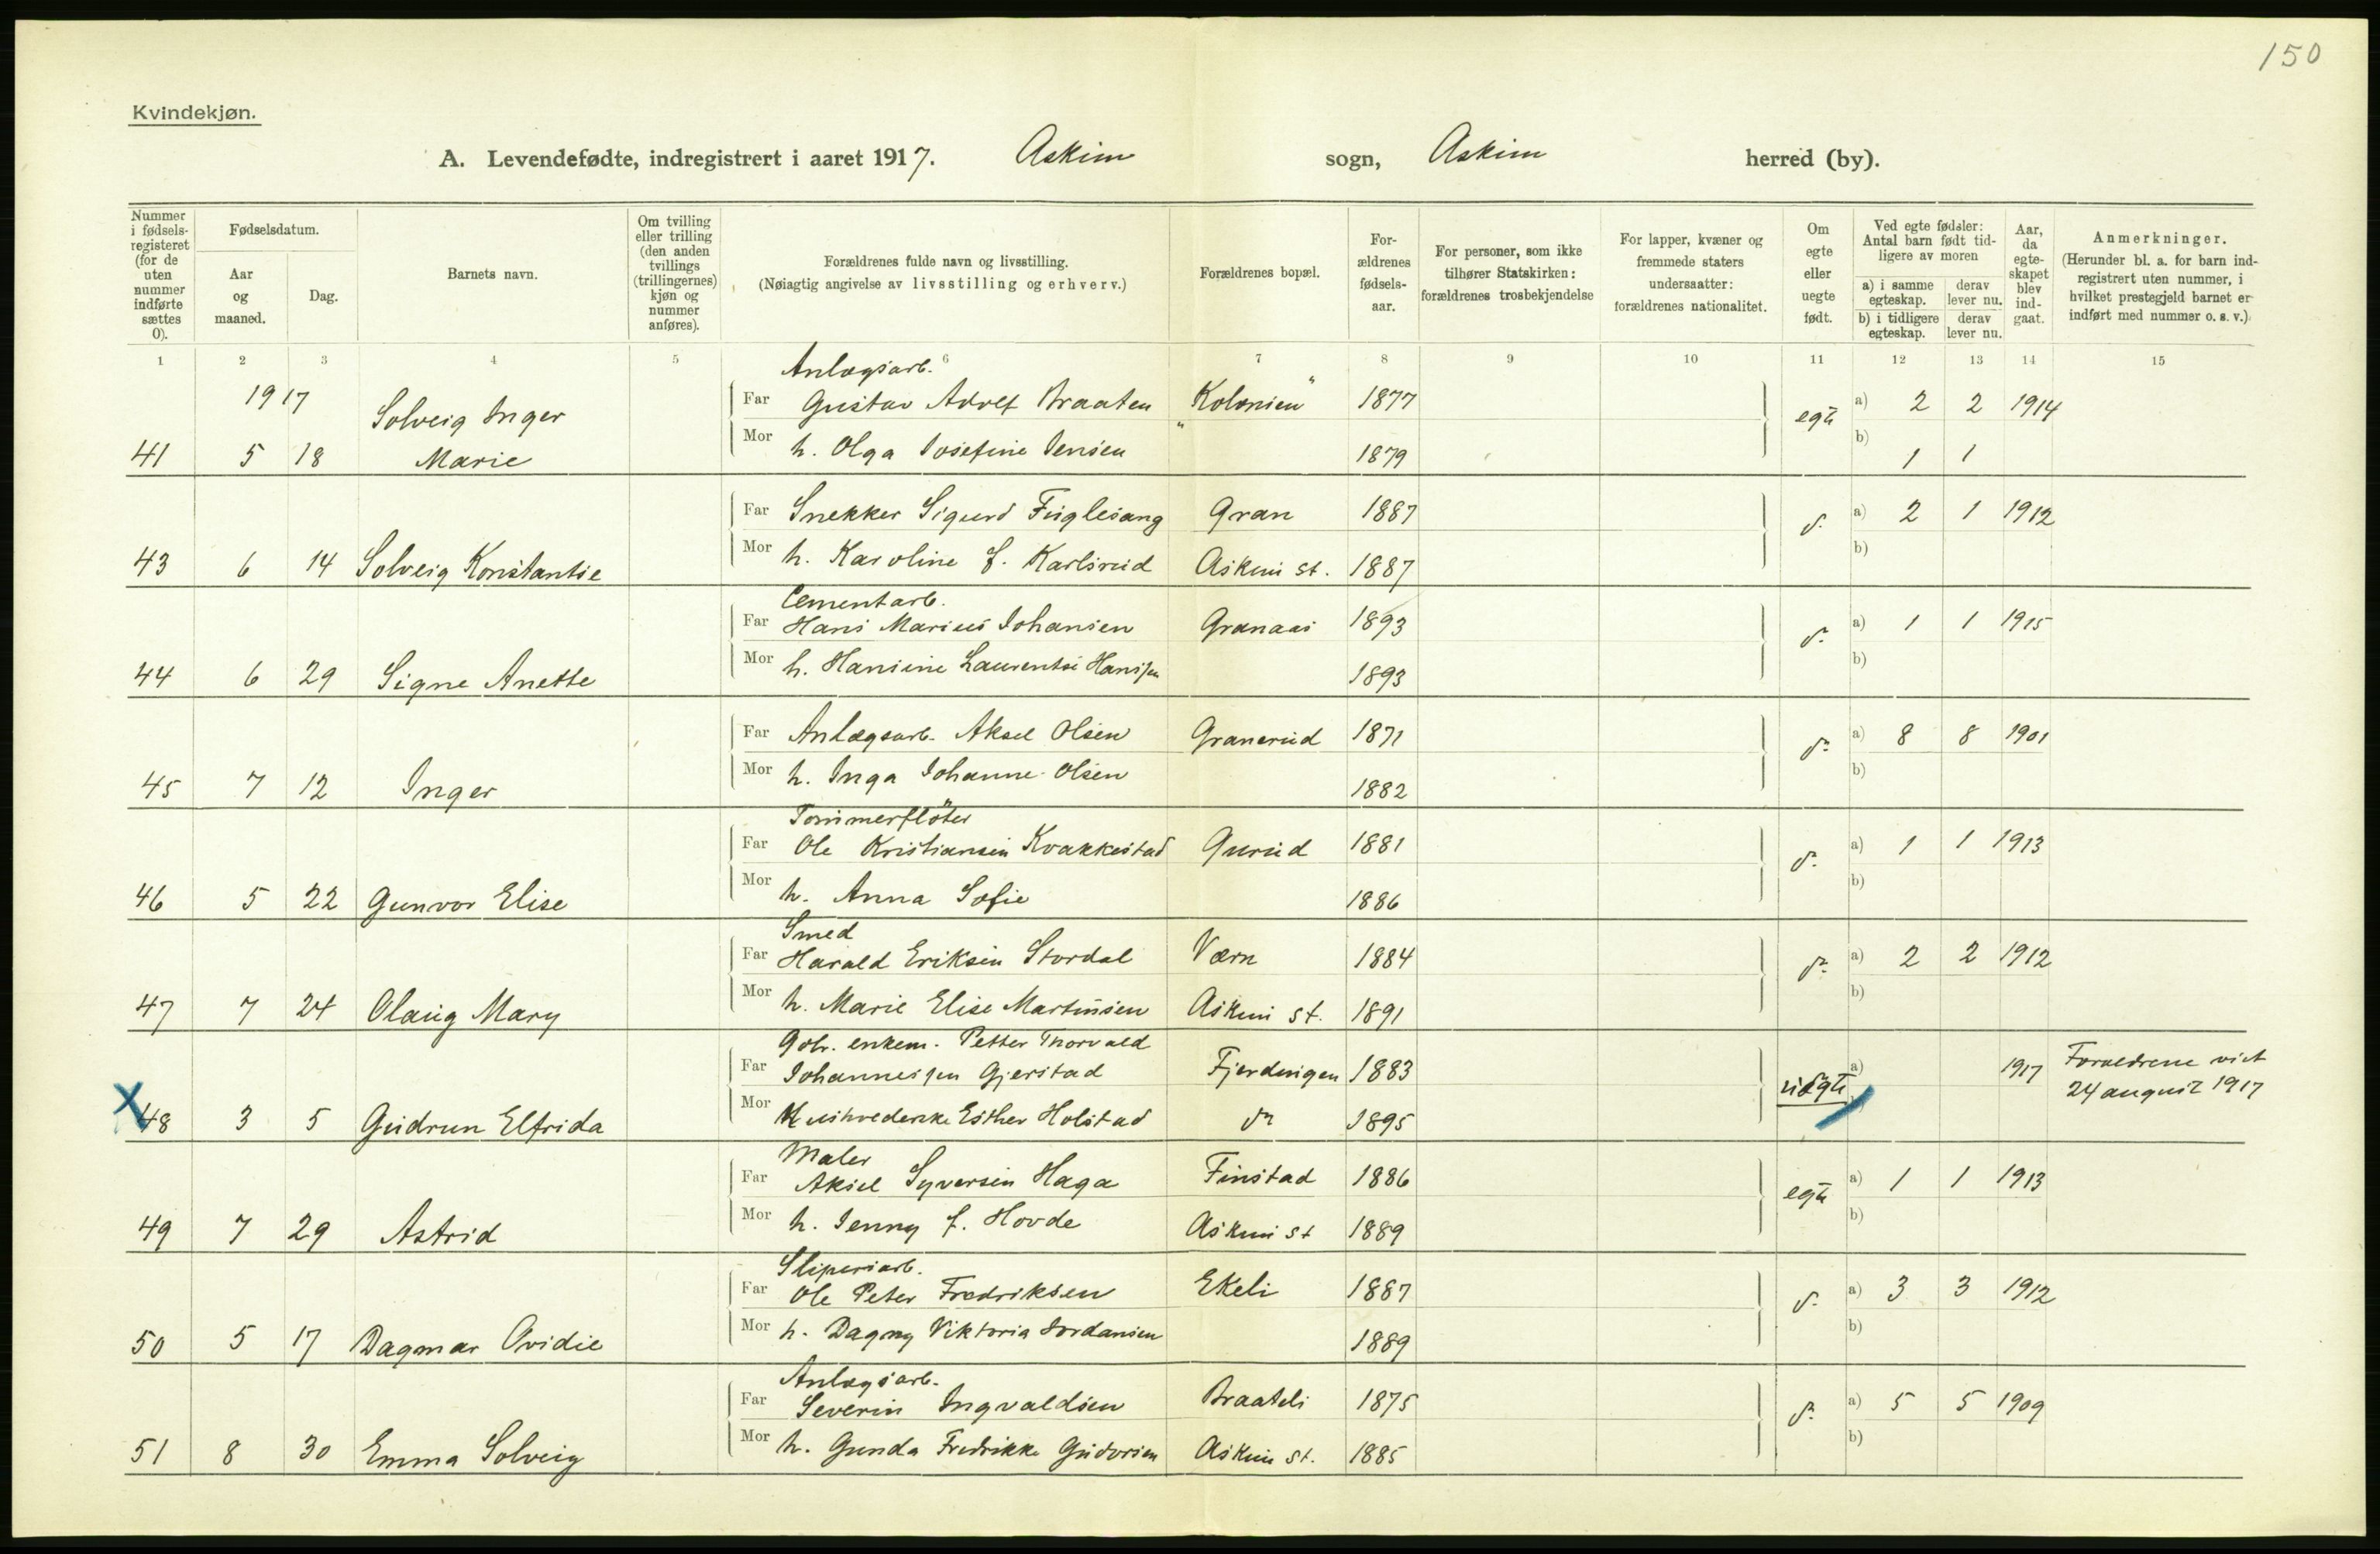 150
Kvindekjøn.
A. Levendefødte, indregistrert i aaret 1917. Askim sogn, Askim herred (by).
Nummer i fødsels-registeret (for de uten nummer indførte sættes 0).
Fødselsdatum.
Aar og maaned.
Dag.
Barnets navn.
Om tvilling eller trilling (den anden tvillings (trillingernes) kjøn og nummer anføres).
Forældrenes fulde navn og livsstilling.
(Nøiagtig angivelse av livsstilling og erhverv.)
Forældrenes bopæl.
For-ældrenes fødsels-aar.
For personer, som ikke tilhører Statskirken: forældrenes trosbekjendelse
For lapper, kvæner og fremmede staters undersaatter: forældrenes nationalitet.
Om egte eller uegte født.
Ved egte fødsler: Antal barn født tid-ligere av moren
a) i samme egteskap. derav lever nu.
b) i tidligere egteskap. derav lever nu.
Aar, da egte-skapet blev ind-gaat.
Anmerkninger.
(Herunder bl. a. for barn ind-registrert uten nummer, i hvilket prestegjeld barnet er indført med nummer o. s. v.)
1 2 3 4 5 6 7 8 9 10 11 12 13 14 15
Anlægsarb.
1917 Solveig Inger Far Gustav Adolf Braaten "Kolonien" 1877 egte a) 2 2 1914
41 5 18 Marie Mor h. Olga Josefine Jensen 1879 b) 1 1
Far Snekker Sigurd Fuglesang Gran 1887 do. a) 2 1 1912
43 6 14 Solveig Konstantse Mor h. Karoline f. Karlsrud Askim st. 1887 b)
Cementarb.
Far Hans Marius Johansen Granaas 1893 do. a) 1 1 1915
44 6 29 Signe Anette Mor h. Hansine Laurentse Hanssen 1893 b)
Far Anlægsarb. Aksel Olsen Granerud 1871 do. a) 8 8 1901
45 7 12 Inger Mor h. Inga Johanne Olsen 1882 b)
Tømmerfløter
Far Ole Kristiansen Kvakkestad Gurud 1881 do. a) 1 1 1913
46 5 22 Gunvor Elise Mor h. Anna Sofie 1886 b)
Smed
Far Harald Eriksen Stordal Værn 1884 do. a) 2 2 1912
47 7 24 Olaug Mary Mor h. Marie Elise Martinsen Askim st. 1891 b)
Gbr. enkem. Petter Thorvald
Far Johannessen Gjerstad Fjerdingen 1883 uegte a) 1917 Forældrene viet
X 48 3 5 Gudrun Elfrida Mor Esther Holstad do 1895 24 august 1917
Maler
Far Aksel Syversen Haga Finstad 1886 egte a) 1 1 1913
49 7 29 Astrid Mor h. Jenny f. Hovde Askim st 1889 b)
Sliperiarb.
Far Ole Peter Fredriksen Ekeli 1887 do. a) 3 3 1912
50 5 17 Dagmar Ovidie Mor h. Dagny Viktoria Jordansen 1889 b)
Anlægsarb.
Far Severin Ingvaldsen Braateli 1875 do. a) 5 5 1909
51 8 30 Emma Solveig Mor h. Gunda Fredrikke Gudorsen Askim st. 1885 b)